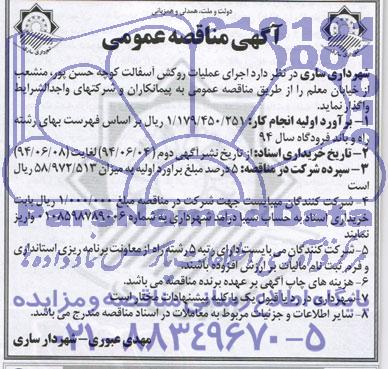 دولت و ملت، همدلی و همزبانی
آگهی مناقصه عمومی
شهرداری ساری در نظر دارد اجرای عملیات روکش آسفالت کوچه حسن پور، منشعب
از خیابان معلم را از طریق مناقصه عمومی به پیمانکاران و شرکتهای واجدالشرایط
واگذار نماید.
۱- برآورد اولیه انجام کار: ۱/۱۷۹/۴۵۰/۲۵۱ ریال بر اساس فهرست بهای رشته
راه و باند فرودگاه سال ۹۴
۲- تاریخ خریداری اسناد: از تاریخ نشر آگهی دوم (۹۴/۰۶/۰۴) لغایت (۹۴/۰۶/۰۸)
۳- سپرده شرکت در مناقصه: ۵ درصد مبلغ برآورد اولیه به میزان ۵۸/۹۷۲/۵۱۳ ریال
۴- شرکت کنندگان میبایست جهت شرکت در مناقصه مبلغ ۱/۰۰۰/۰۰۰ ریال بابت
خریداری اسناد به حساب سیبا درآمد شهرداری به شماره ۰۱۰۸۵۹۸۷۸۹۰۰۶ واریز
نمایند
۵- شرکت کنندگان می بایست دارای رتبه ۵ رشته راه از معاونت برنامه ریزی استانداری
و فرم ثبت نام مالیات بر ارزش افزوده باشند.
۶- هزینه های چاپ آگهی بر عهده برنده مناقصه می باشد.
۷- شهرداری در رد یا قبول یک یا کلیه پیشنهادات مختار است
۸- سایر اطلاعات و جزئیات مربوط به معاملات در اسناد مناقصه مندرج می باشد.
مهدی عبوری - شهردار ساری
۰۲۱-۸۸۳۴۹۶۷۰-۵